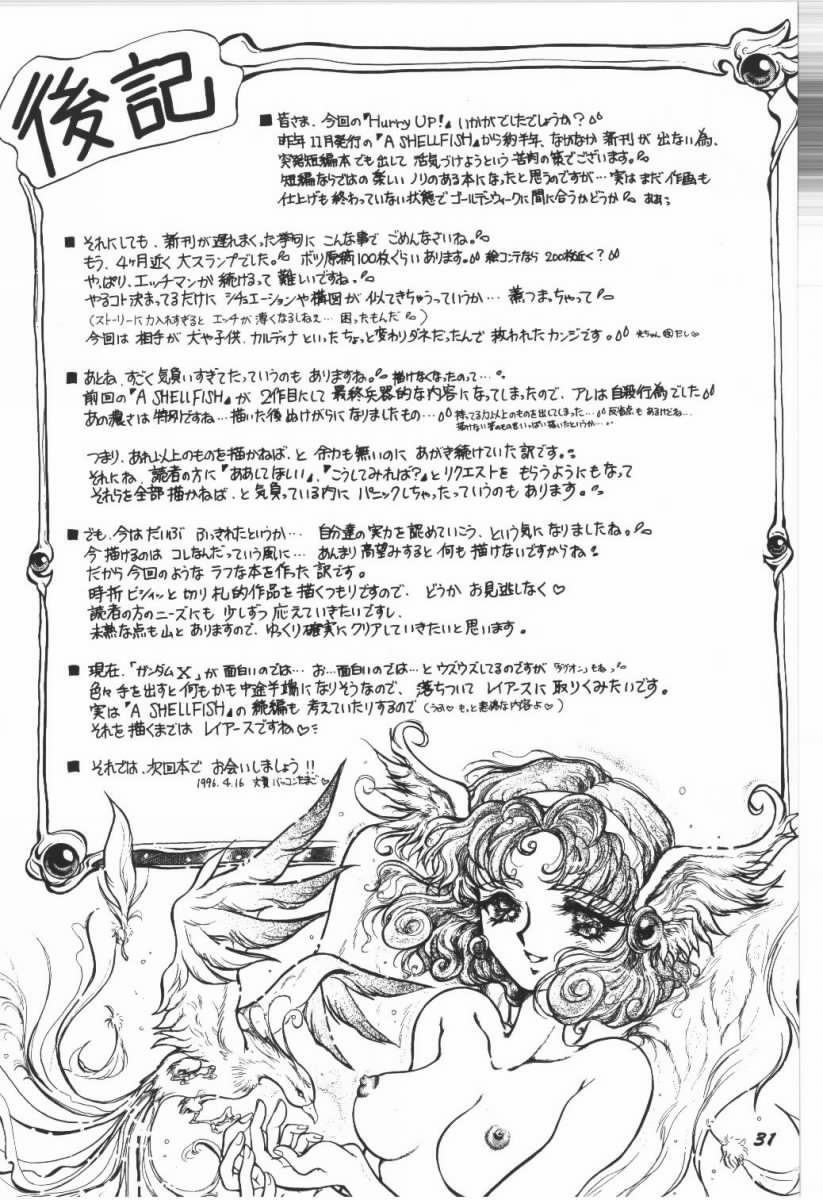 後記
■皆さま、今回の『Hurry UP!』いかがでしたでしょうか?
昨年11月発行の『A SHELLFISH』から約半年、なかなか新刊が出ない為、
突発短編本でも出して活気づけようという苦肉の策でございます。
短編ならではの楽しいノリのある本になったと思うのですが…実はまだ作画も
仕上げも終わっていない状態でゴールデンウィークに間に合うかどうか
■それにしても、新刊が遅れまくった挙句にこんな事でごめんなさいね。
もう、4ヶ月近く大スランプでした。ボツ原稿100枚ぐらいあります。絵コンテなら200枚近く?
やっぱり、エッチマンガ続けるって難しいですね。
やるコト決まってるだけにシチュエーションや構図が似てきちゃうっていうか…煮つまっちゃって
(ストーリーに力入れすぎるとエッチが薄くなるしねえ…困ったもんだ)
今回は相手が犬や子供、カルディナといったちょっと変わりダネだったんで救われたカンジです。
■あとね、すごく気負いすぎてたっていうのもありますね。描けなくなったのって…
前回の『A SHELLFISH』が2作目にして最終兵器的な内容になってしまったので、アレは自殺行為でした
あの濃さは特別ですね…描いた後ぬけがらになりましたもの…持ってる力以上のものを出してしまった…反省点もあるけどね…
つまり、あれ以上のものを描かねば、と余力も無いのにあがき続けていた訳です。
それにね、読者の方に『ああしてほしい』、『こうしてみれば?』とリクエストをもらうようにもなって
それらを全部描かねば、と気負っている内にパニックしちゃったっていうのもあります。
■でも、今はだいぶふっきれたというか…自分達の実力を認めていこう、という気になりましたね。
今描けるのはコレなんだっていう風に…あんまり高望みすると何も描けないですからね
だから今回のようなラフな本を作った訳です。
時折ビシィッと切り札的作品を描くつもりですので、どうかお見逃しなく♡
読者の方のニーズにも少しずつ応えていきたいですし、
未熟な点も山とありますので、ゆっくり確実にクリアしていきたいと思います。
■現在、「ガンダムX」が面白いのでは…お…面白いのでは…とウズウズしてるのですが
色々手を出すと何もかも中途半端になりそうなので、落ちついてレイアースに取りくみたいです。
実は『A SHELLFISH』の続編も考えていたりするので(うふ♡もっと悪趣な内容よ♡)
それを描くまではレイアースですね♡
■それでは、次回本でお会いしましょう!!
1996.4.16
31